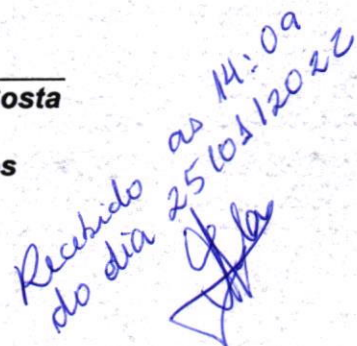 osta
s
Recebido as 14:09
do dia 25/01/2022